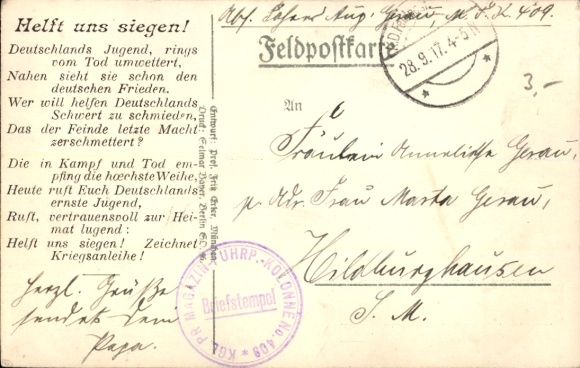 Helft uns siegen!
Deutschlands Jugend, rings
vom Tod umwettert,
Nahen sieht sie schon den
deutschen Frieden.
Wer will helfen Deutschlands
Schwert zu schmieden,
Das der Feinde letzte Macht
zerschmettert?
Die in Kampf und Tod em-
pfing die hœchste Weihe,
Heute ruft Euch Deutschlands
ernste Jugend,
Ruft, vertrauensvoll zur Hei-
mat lugend:
Helft uns siegen! Zeichnet
Kriegsanleihe!
Herzl. Grüße
sendet Dein
Papa.
Entwurf: Prof. Fritz Erler, München
Druck: Selmar Bayer, Berlin SO.
Abs. Aug. Gerau, M. F. K. 409.
Feldpostkarte
28.9.17. 4-5
3,-
An
Fräulein Anneliese Gerau,
p. Adr. Frau Marta Gerau,
Hildburghausen
S. M.
KGL. PR. MAGAZIN-FUHRP.-KOLONNE No. 409
Briefstempel